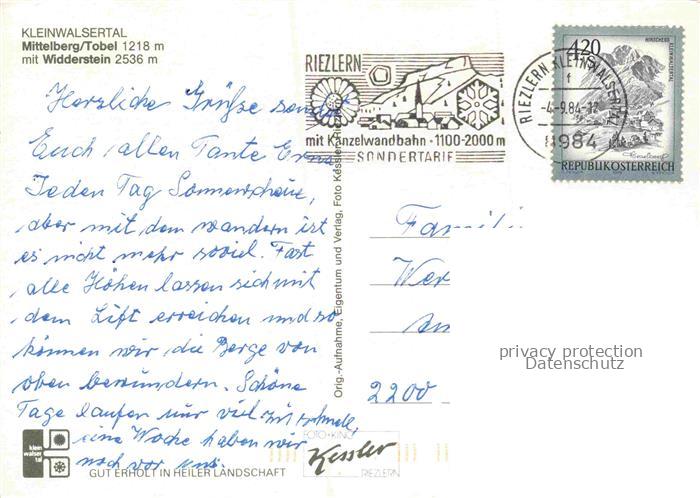 KLEINWALSERTAL
Mittelberg/Tobel 1218 m
mit Widderstein 2536 m
Herzliche Grüße sendet
Euch allen Tante Erna
Jeden Tag Sonnenschein,
aber mit dem wandern ist
es nicht mehr soviel. Fast
alle Höhen lassen sich mit
dem Lift erreichen und so
können wir die Berge von
oben bewundern. Schöne
Tage laufen nur viel zu schnell,
eine Woche haben wir
noch vor uns.
klein
walser
tal
GUT ERHOLT IN HEILER LANDSCHAFT
Orig.-Aufnahme, Eigentum und Verlag, Foto Kessler
FOTO + KINO
Kessler
RIEZLERN
RIEZLERN
mit Kanzelwandbahn · 1100-2000 m
SONDERTARIF
RIEZLERN KLEINWALSERTAL
f
-4.-9.84-12
6984
4.20
S
HIRSCHEGG
KLEINWALSERTAL
REPUBLIK ÖSTERREICH
Famili
Wer
An
2200
privacy protection
Datenschutz